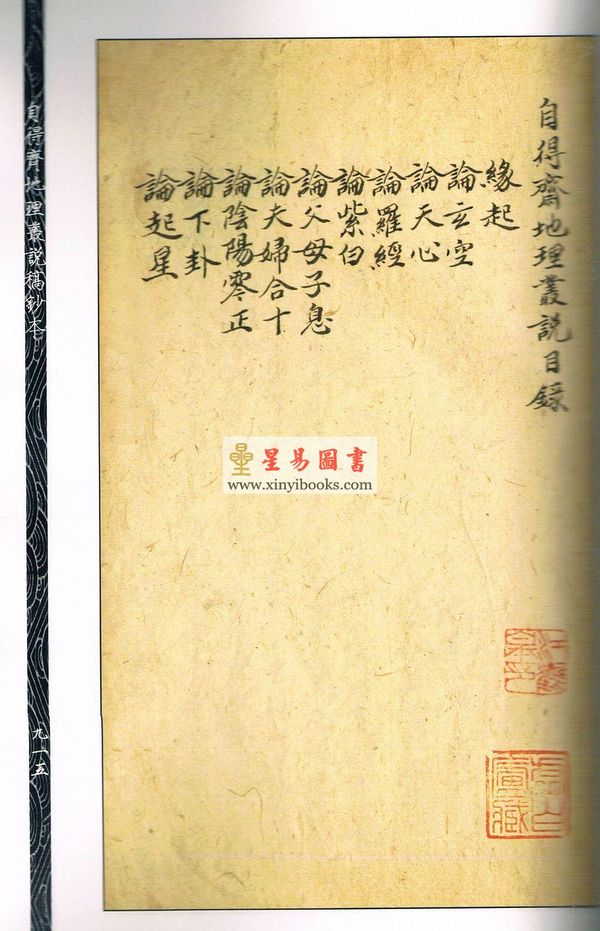 自得齋地理叢說目錄
緣起
論玄空
論天心
論羅經
論紫白
論父母子息
論夫婦合十
論陰陽零正
論下卦
論起星
自得齊地理叢說稿鈔本
九一五
星易圖書
www.xinyibooks.com